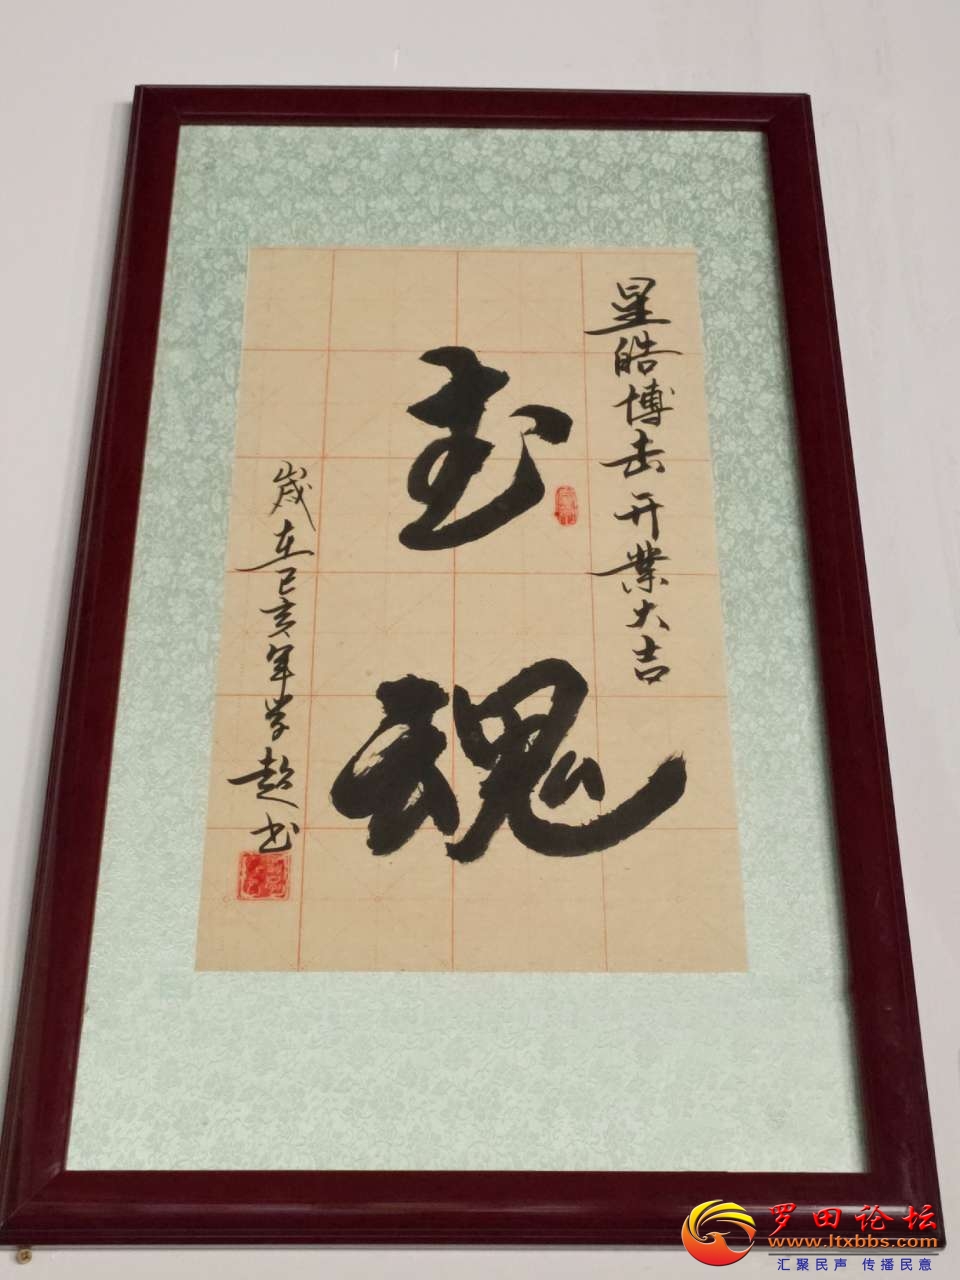 星皓博击开业大吉
武魂
岁在己亥年学超书
罗田论坛
www.ltxbbs.com
汇聚民声 传播民意